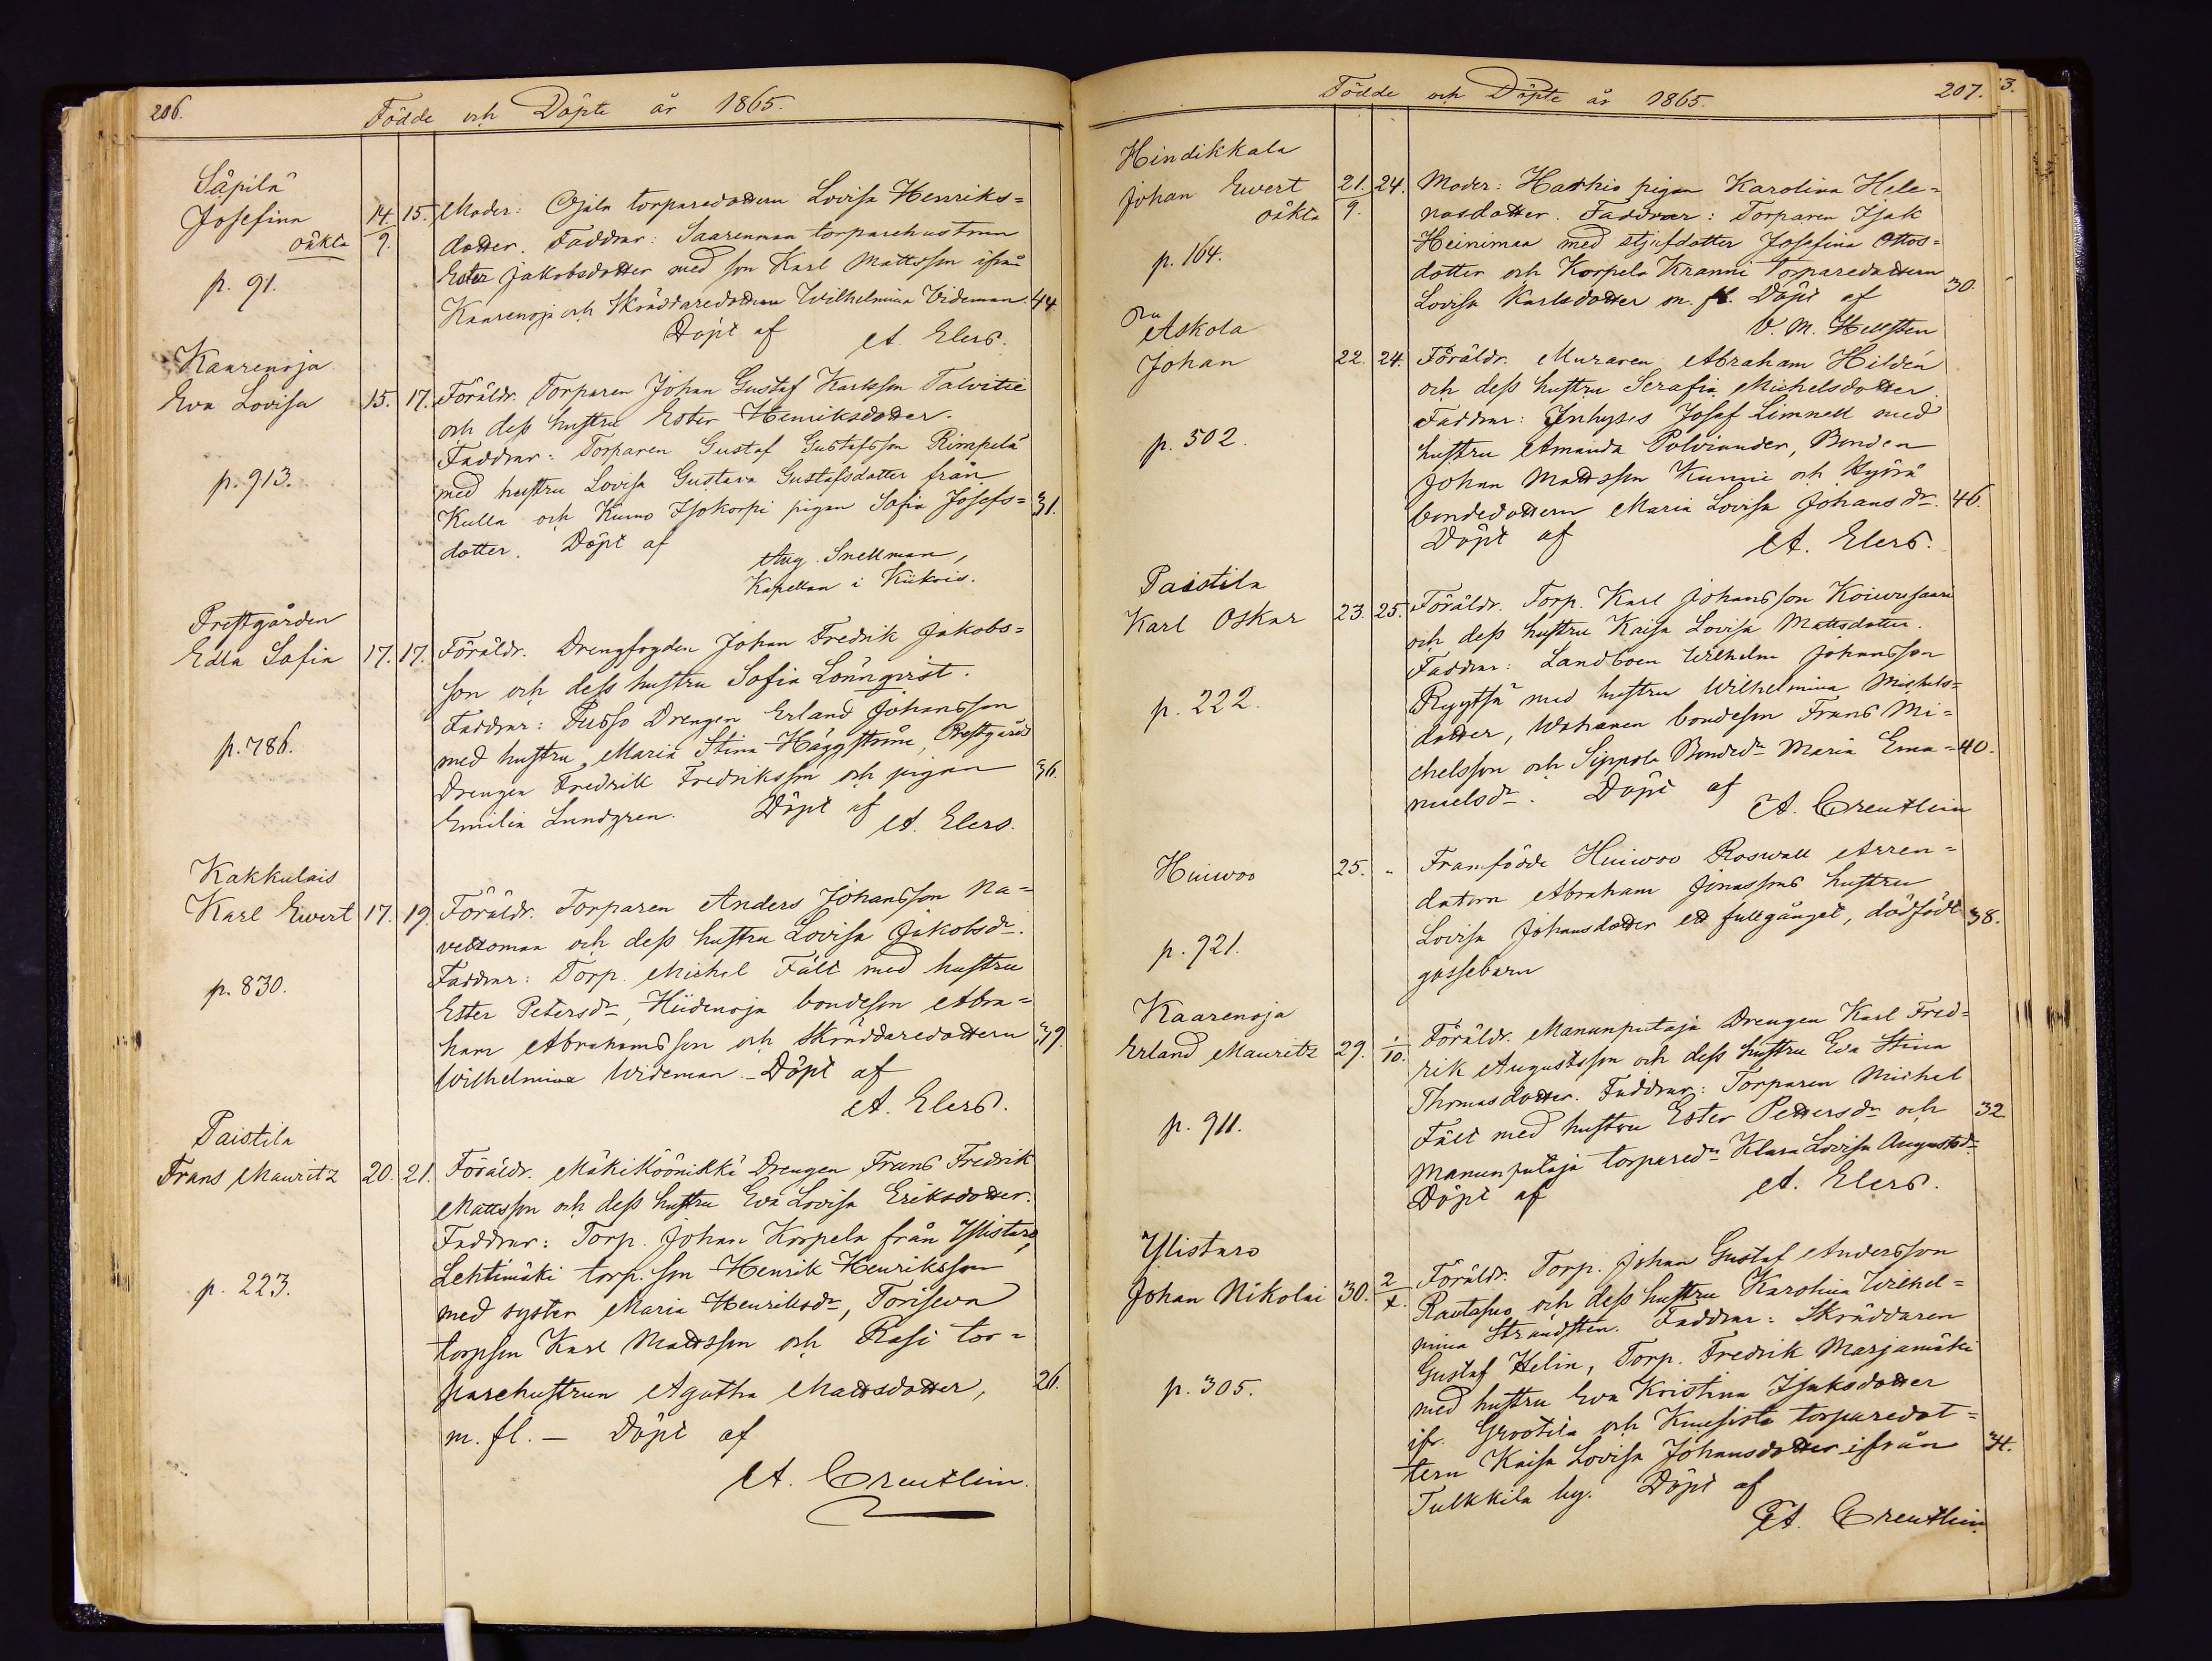 206.
Födde och Döpte år 1865.
Såpilä
Josefina 14. 15. Moder: Ojala torparedottern Lovisa Henriks=
oäkta 9. dotter. Faddrar: Saarenmaa torparehustrun
Ester Jakobsdotter med son Karl Mattsson ifrån
p. 91. Kaarenoja och Skräddaredottern Wilhelmina Videman. 44.
Döpt af A. Elers.
Kaarenoja
Eva Lovisa 15. 17. Föräldr. Torparen Johan Gustaf Karlsson Talvitie
och dess hustru Ester Henriksdotter.
Faddrar: Torparen Gustaf Gustafsson Rimpelä
p. 913. med hustru Lovisa Gustava Gustafsdotter från
Kulla och Kumo Isokorpi pigan Sofia Josefs= 31.
dotter. Döpt af
Aug. Snellman,
Kapellan i Kiikois.
Prestgården
Edla Sofia 17. 17. Föräldr. Drengfogden Johan Fredrik Jakobs=
son och dess hustru Sofia Lönnqvist.
Faddrar: Pusso Drengen Erland Johansson
p. 786. med hustru Maria Stina Häggström, Prestgårds
Drengen Fredrik Fredriksson och pigan 36.
Emilia Lundgren. Döpt af
A. Elers.
Kakkulais
Karl Ewert 17. 19. Föräldr. Torparen Anders Johansson Na=
vettomaa och dess hustru Lovisa Jakobsdr.
Faddrar: Torp. Michel Fält med hustru
p. 830. Ester Petersdr, Hiidenoja bondeson Abra=
ham Abrahamsson och Skräddaredottern 39.
Wilhelmina Wideman. – Döpt af
A. Elers.
Paistila
Frans Mauritz 20. 21. Föräldr. Mäki Köönikkä Drengen Frans Fredrik
Mattsson och dess hustru Eva Lovisa Eriksdotter.
Faddrar: Torp. Johan Korpela från Ylistaro,
p. 223. Lehtimäki torp. son Henrik Henriksson
med syster Maria Henriksdr, Toriseva
torpson Karl Mattsson och Rasi tor=
parehustrun Agatha Mattsdotter, 26.
m. fl. – Döpt af
A. Creutlein.
Födde och Döpte år 1865. 207. 3.
Hindikkala
Johan Ewert 21. 24. Moder: Harhio pigan Karolina Hele=
oäkta 9. nasdotter. Faddrar: Torparen Isak
Heinimaa med stjufdotter Josefina Ottos=
p. 164. dotter och Korpela Kranni torparedottern
Lovisa Karlsdotter m. fl. Döpt af 30.
V. M. Hellsten
Askola
Johan 22. 24. Föräldr. Muraren Abraham Hildén
och dess hustru Serafia Michelsdotter.
Faddrar: Inhyses Josef Limnell med
p. 502. hustru Amanda Polviander, Bonden
Johan Mattsson Kunni och Hyörä
bondedottern Maria Lovisa Johansdr. 46.
Döpt af A. Elers.
Paistila
Karl Oskar 23. 25. Föräldr. Torp. Karl Johansson Koivusaari
och dess hustru Kaisa Lovisa Mattsdotter.
Faddrar: Landboen Wilhelm Johansson
p. 222. Ryytsä med hustru Wilhelmina Michels=
dotter, Wähänen bondeson Frans Mi=
chelsson och Sippola Bondedr Maria Ema= 40.
nuelsdr. Döpt af
A. Creutlein
Huiwoo 25. „ Framfödde Huiwoo Roswall Arren=
datorn Abraham Jonassons hustru
p. 921. Lovisa Johansdotter ett fullgånget, dödfödt 38.
gossebarn
Kaarenoja
Erland Mauritz 29. 1/10. Föräldr. Manunputaja Drengen Karl Fred=
rik Augustsson och dess hustru Eva Stina
Thomasdotter. Faddrar: Torparen Michel
p. 911. Fält med hustru Ester Pettersdr och 32.
Manunputaja torparedr Klara Lovisa Augustsdr.
Döpt af A. Elers.
Ylistaro
Johan Nikolai 30. 2/X. Föräldr. Torp. Johan Gustaf Andersson
Rautasuo och dess hustru Karolina Wilhel=
mina Strandsten. Faddrar: Skräddaren
Gustaf Helin, Torp. Fredrik Marjamäki
p. 305. med hustru Eva Kristina Isaksdotter
ifr. Grootila och Kuusisto torparedot=
tern Kaisa Lovisa Johansdotter ifrån 34.
Tulkkila by. Döpt af
A. Creutlein